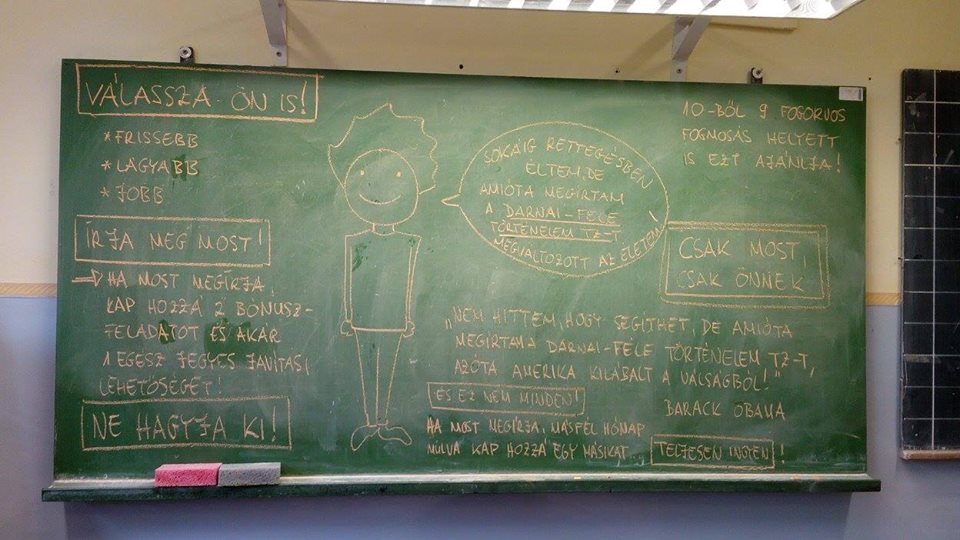 VÁLASSZA ÖN IS!
* FRISSEBB
* LÁGYABB
* JOBB
ÍRJA MEG MOST!
HA MOST MEGÍRJA,
KAP HOZZÁ 2 BÓNUSZ-
FELADATOT ÉS AKÁR
1 EGÉSZ JEGYES JAVÍTÁSI
LEHETŐSÉGET!
NE HAGYJA KI!
SOKÁIG RETTEGÉSBEN
ÉLTEM, DE
AMIÓTA MEGÍRTAM
A DARNAI-FÉLE
TÖRTÉNELEM TZ-T
MEGVÁLTOZOTT AZ ÉLETEM
10-BŐL 9 FOGORVOS
FOGMOSÁS HELYETT
IS EZT AJÁNLJA!
CSAK MOST,
CSAK ÖNNEK
„NEM HITTEM, HOGY SEGÍTHET, DE AMIÓTA
MEGÍRTAM A DARNAI-FÉLE TÖRTÉNELEM TZ-T,
AZÓTA AMERIKA KILÁBALT A VÁLSÁGBÓL!"
BARACK OBAMA
ÉS EZ NEM MINDEN!
HA MOST MEGÍRJA, MÁSFÉL HÓNAP
MÚLVA KAP HOZZÁ EGY MÁSIKAT... TELJESEN INGYEN!